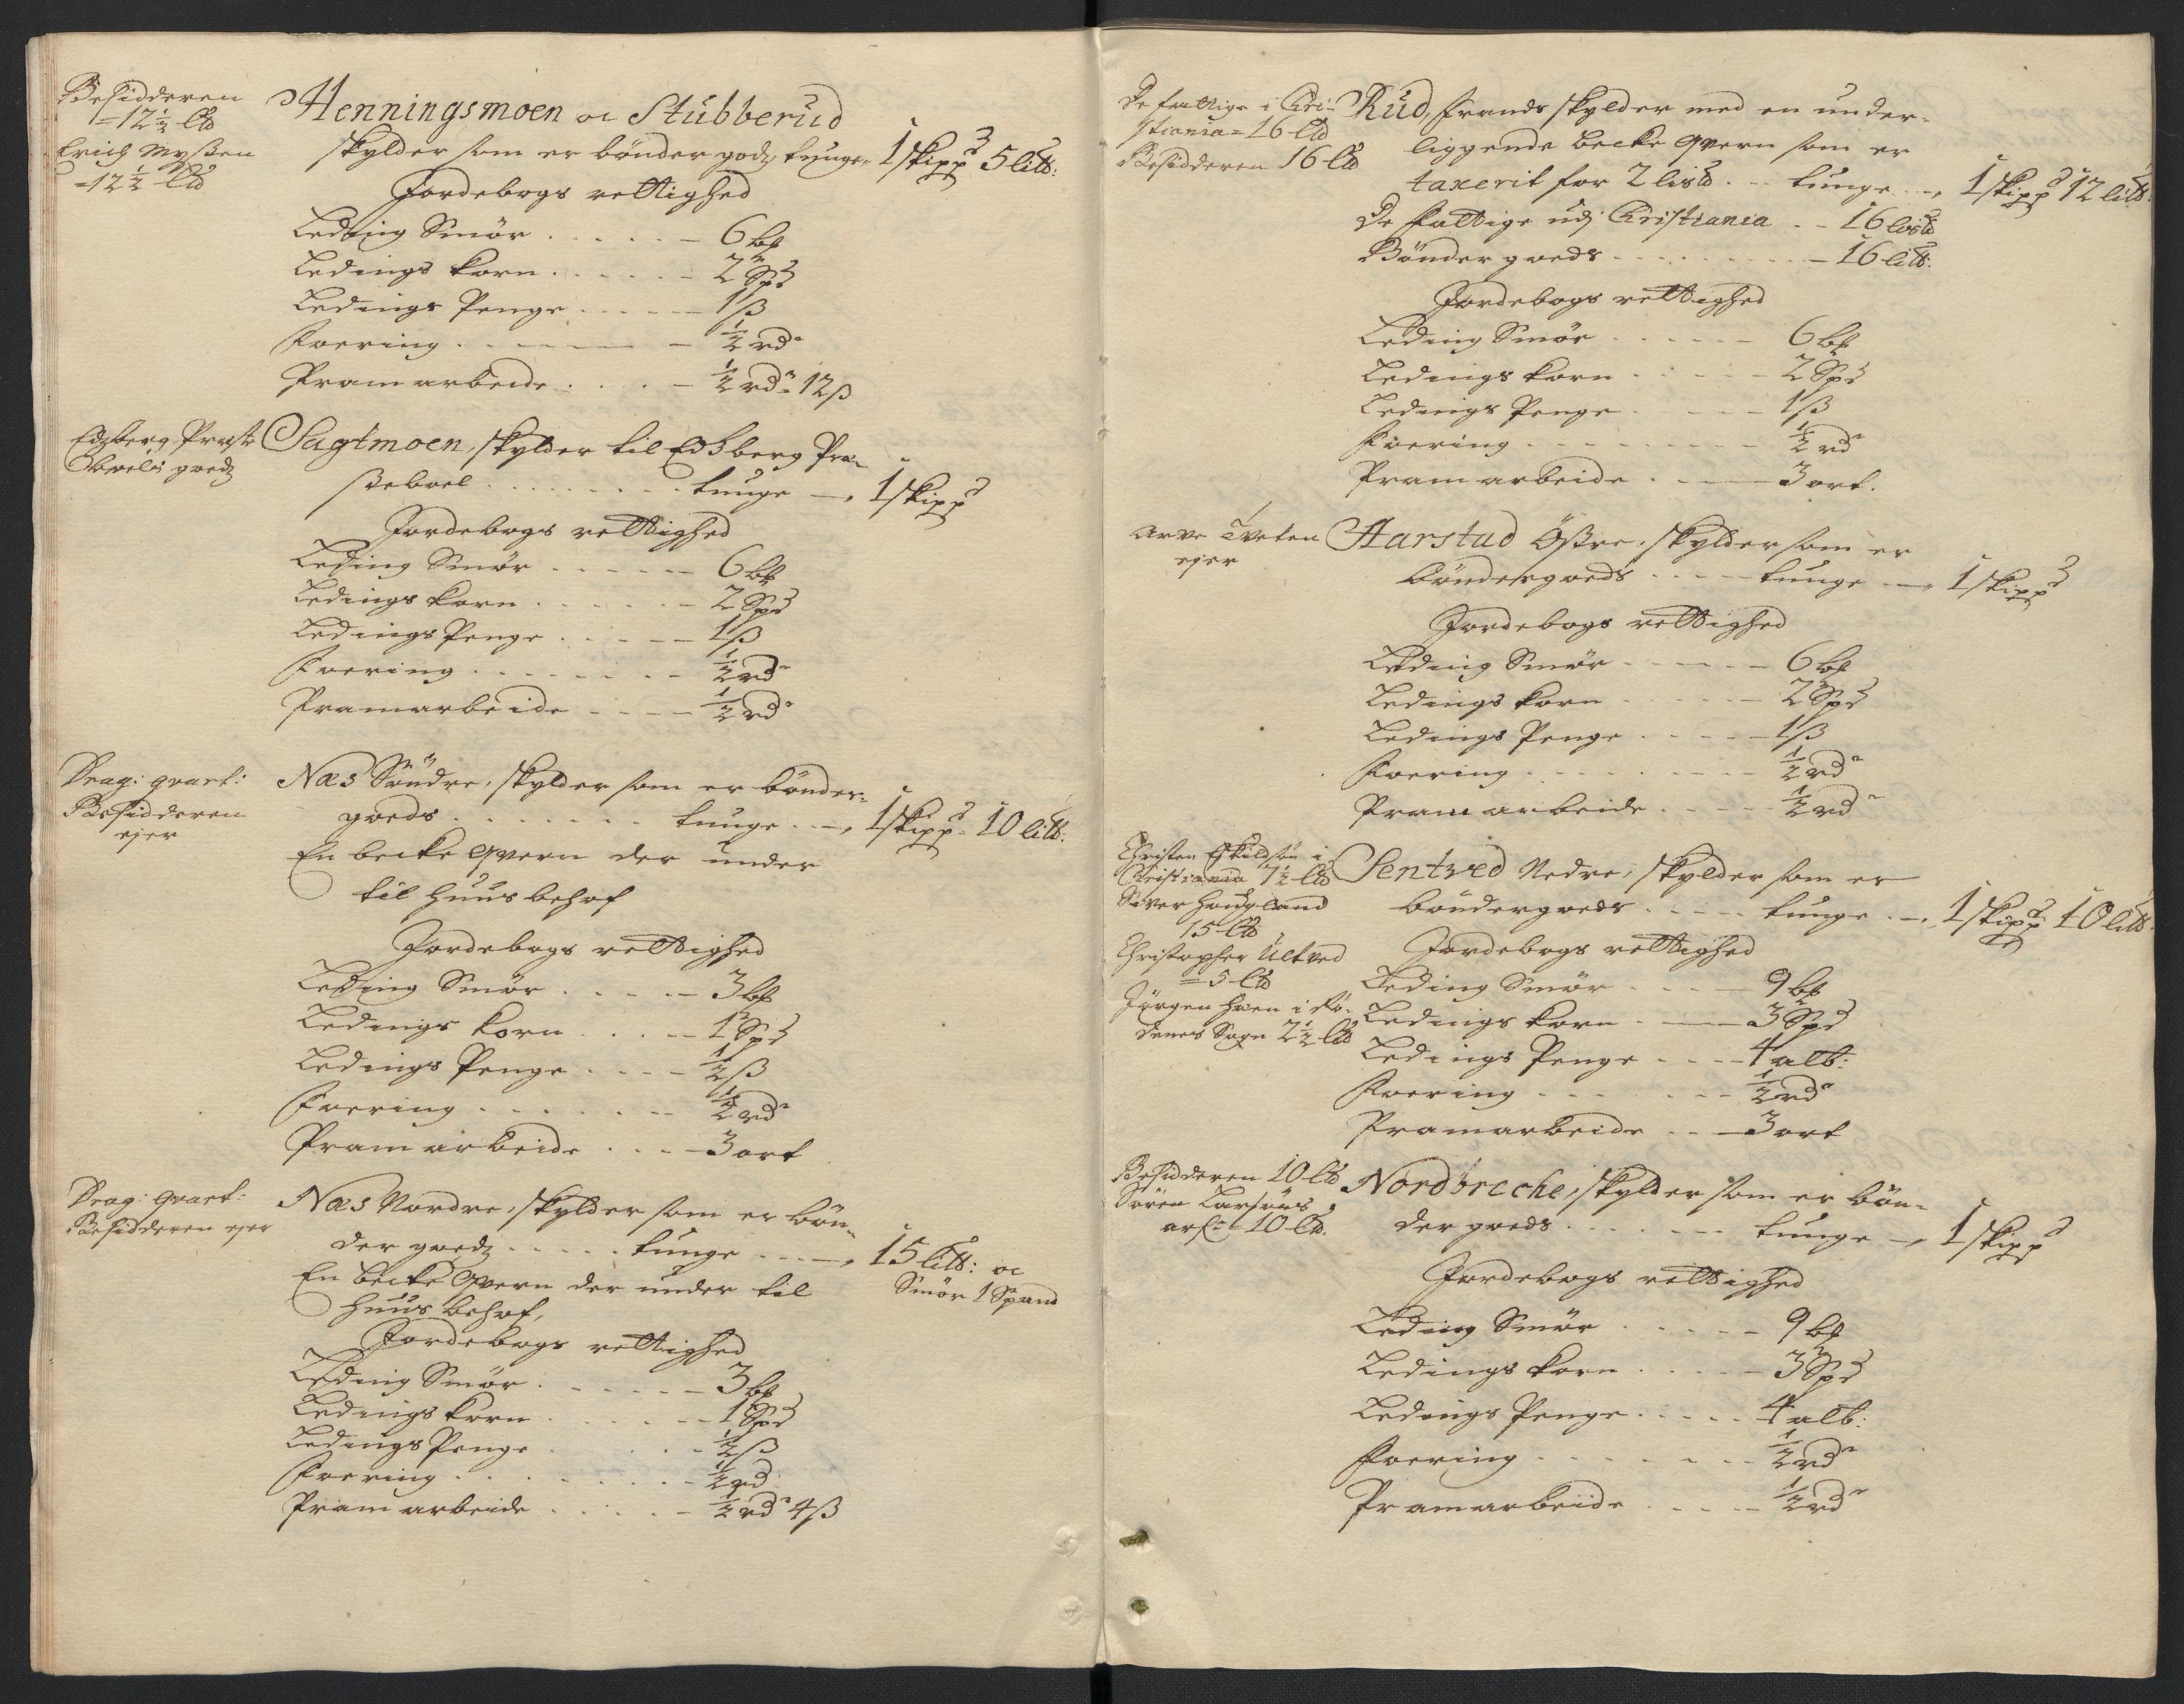 Besidderen
= 12½ ℔
Erich Myßen
= 12½ ℔
Henningsmoen oc Stubberud
skylder som er bönder godz tunge, 1 skippd 5 litt:
Jordebogs rettighed
Leding Smör . . . . . 6 bp
Ledings korn . . . . . 2 Spd
Ledings Penge . . . . . 1 ß
Foering . . . . . ½ rdr
Pram arbeide . . . . ½ rdr 12 ß
Edzberg Præste
boels godz
Sagtmoen, skylder til Edsberg Præ-
steboel . . . . . . tunge - , 1 skippd
Jordebogs rettighed
Leding Smör . . . . . 6 bp
Ledings korn . . . . . 2 Spd
Ledings Penge . . . . . 1 ß
Foering . . . . . ½ rdr
Pramarbeide . . . . ½ rdr
Drag: qvart:
Besidderen
ejer
Næs Söndre, skylder som er bönder-
goeds . . . . . . tunge . - , 1 skippd 10 litt:
En becke qvern der under
til huus behof
Jordebogs rettighed
Leding Smör . . . . 3 bp
Ledings korn . . . . 1 Spd
Ledings Penge . . . . ½ ß
Foering . . . . . ½ rdr
Pram arbeide . . . 3 ort
Drag: qvart:
Besidderen ejer
Næs Nordre, skylder som er bön-
der goedz . . . . tunge . . . , 15 litt: oc
Smör 1 Spand
En becke qvern der under til
huus behof,
Jordebogs rettighed
Leding Smör . . . . . 3 bp
Ledings korn . . . . . 1 Spd
Ledings Penge . . . . ½ ß
Foering . . . . . ½ rd
Pram arbeide . . . . . ½ rdr 4 ß
De fattige i Chri-
stiania = 16 ℔
Besidderen 16 ℔
Rud, Frands skylder med en under-
liggende becke qvern som er
taxerit for 2 lis℔ . . tunge . . , 1 skippd 12 litt:
De fattige udj Christiania . . 16 lis℔
Bönder goeds . . . . . . . 16 litt:
Jordebogs rettighed
Leding Smör . . . . . 6 bp
Ledings korn . . . . . 2 Spd
Ledings Penge . . . . . 1 ß
Foering . . . . . . ½ rdr
Pram arbeide . . . . 3 ort.
Arve Tveten
ejer
Harstad Östre, skylder som er
böndergoeds . . . tunge . - , 1 skippd
Jordebogs rettighed
Leding Smör . . . . . 6 bp
Ledings korn . . . . . 2 Spd
Ledings Penge . . . . . 1 ß
Foering . . . . . . ½ rdr
Pram arbeide . . . . ½ rdr
Christen Eskildsön i
Christiania 7½ ℔
Siver Hougland
15 ℔
Christopher Ultved
= 5 ℔
Jörgen Hven i Rö-
denes Sogn 2½ ℔
Sentved Nedre, skylder som er
böndergoeds . . . . tunge . - , 1 skippd 10 litt:
Jordebogs rettighed
Leding Smör . . . . 9 bp
Ledings korn . . . . 3 Spd
Ledings Penge . . . . 4 alb:
Foering . . . . . ½ rdr
Pramarbeide . . . 3 ort
Besidderen 10 ℔
Sören Larsöns
arf: = 10 ℔.
Nordbreche, skylder som er bön-
der goeds . . . . . . tunge - , 1 skippd
Jordebogs rettighed
Leding Smör . . . . . 9 bp
Ledings korn . . . . . 3 Spd
Ledings Penge . . . . . 4 alb:
Foering . . . . . . ½ rdr
Pramarbeide . . . . . ½ rdr